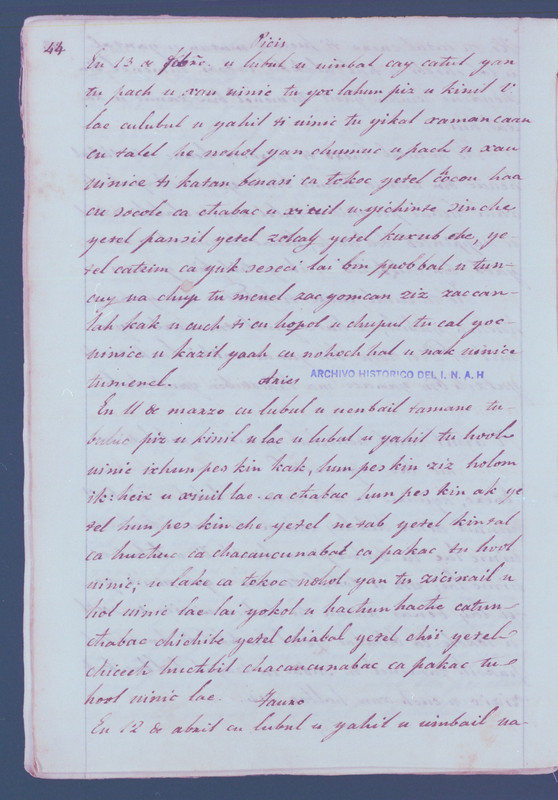 44
Picis
En 13 de febro u lubul u uinbal cay catul yan
tu pach u xau uinic tu yoc lahun piz u kinil V
lae culubul u yahil ti uinic tu yikal xamancaan
cu talel he nohol yan chumuc u pach u xau
uinice ti katan benasi ca tokoc yetel cocou haa
cu socole ca chabac u xiuil u yichinte sinche
yetel pansil yetel zokaly yetel kuxub che, ye
tel catzim ca yuk seseci lai bin ppobbal u tun-
cuy na chup tu menel zac yomcan ziz zaccan-
lah kak u cuch ti cu hopol u chupul tu cal yoc
uinice u kazil yaah cu nohoch hal u nak uinice
tumenel. Aries
ARCHIVO HISTORICO DEL I. N. A. H
En 11 de marzo cu lubul u uenbail tamane tu-
buluc piz u kinil u lae u lubul u yahil tu hool
uinic ixhun pes kin kak, hum pes kin ziz holom
ik: heix u xiuil lae. ca chabac hun pes kin ak ye
tel hun pes kin che yetel netab yetel kintal
ca huchuc ca chacancunabac ca pakac tu hool
uinic; u lake ca tokoc nohol yan tu zicinail u
hol uinic lae lai yokol u hachun hache catun-
chabac chichibe yetel chiabal yetel chii yetel
chiceeh huchbil chacancunabac ca pakac tu
hool uinic lae. Tauro
En 12 de abril cu lubul u yahil u uimbail ua-